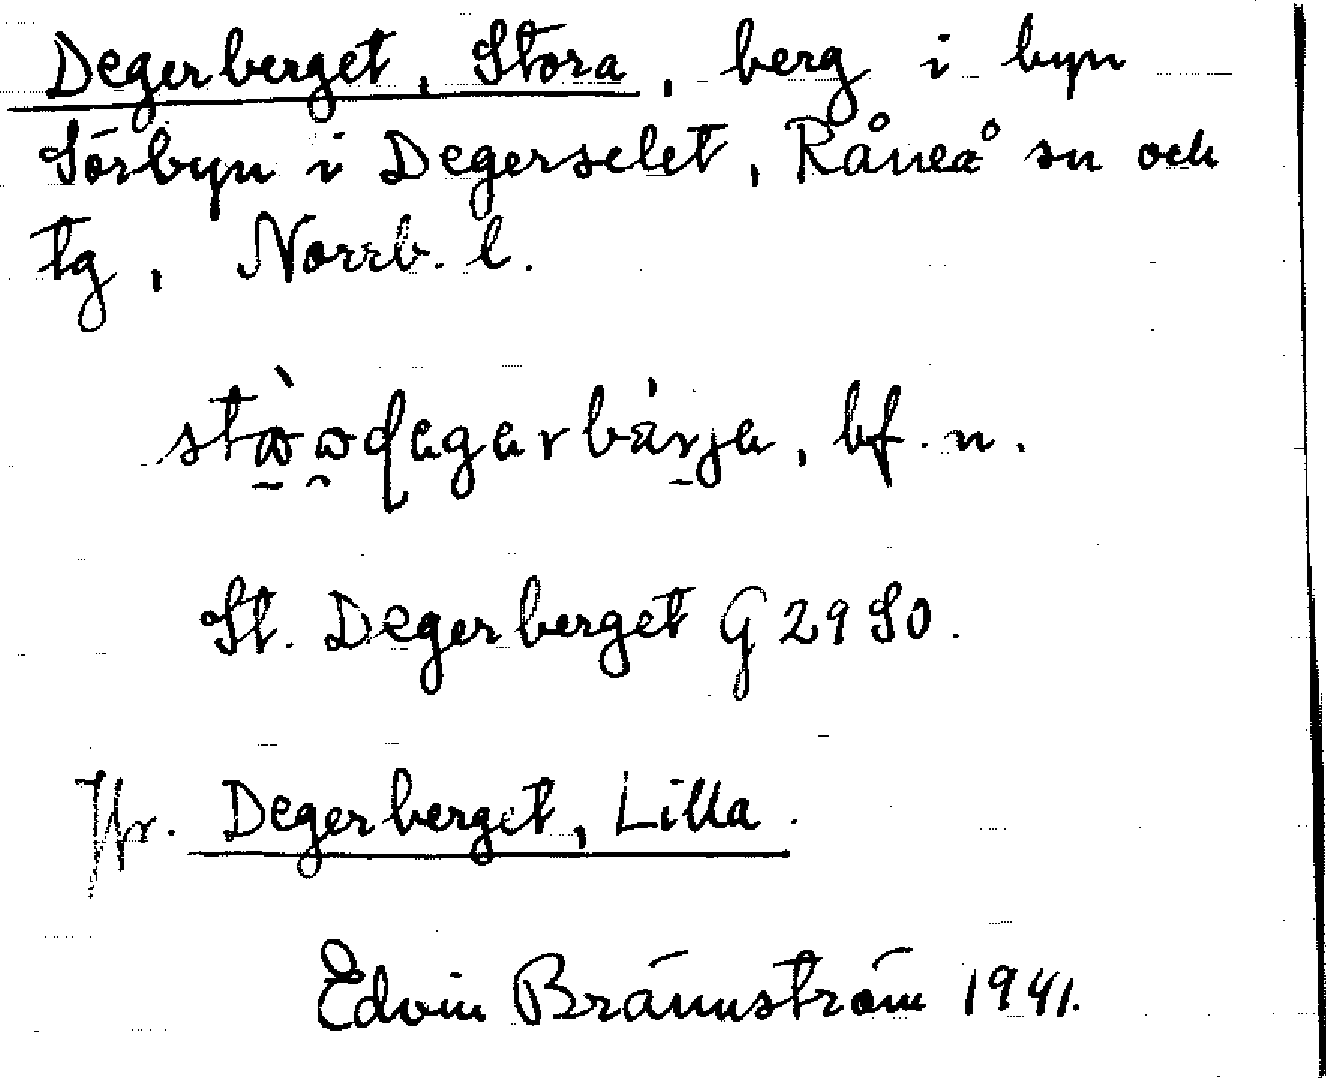 Degerberget, Stora, berg i byn
Sörbyn i Degerselet, Råneå sn och
tg, Norrb. l.
bf. n.
St. Degerberget G 29 SO.
Jfr. Degerberget, Lilla.
Edvin Brännström 1941.